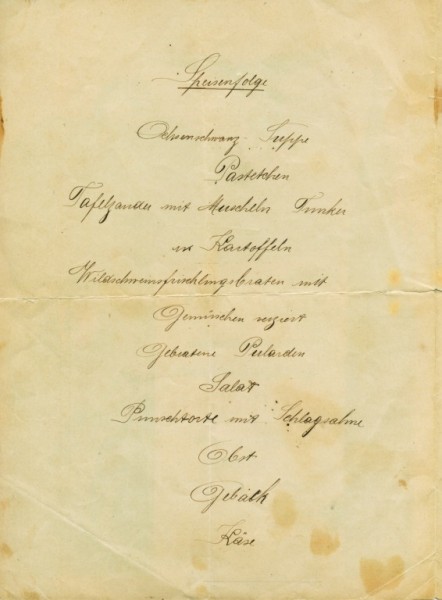 Speisenfolge
Ochsenschwanz-Suppe
Pastetchen
Tafelzander mit Muscheln Tunken
u. Kartoffeln
Wildschweinsfrischlingsbraten mit
Gemüschen verziert
Gebratene Poularden
Salat
Punschtorte mit Schlagsahne
Obst
Gebäck
Käse